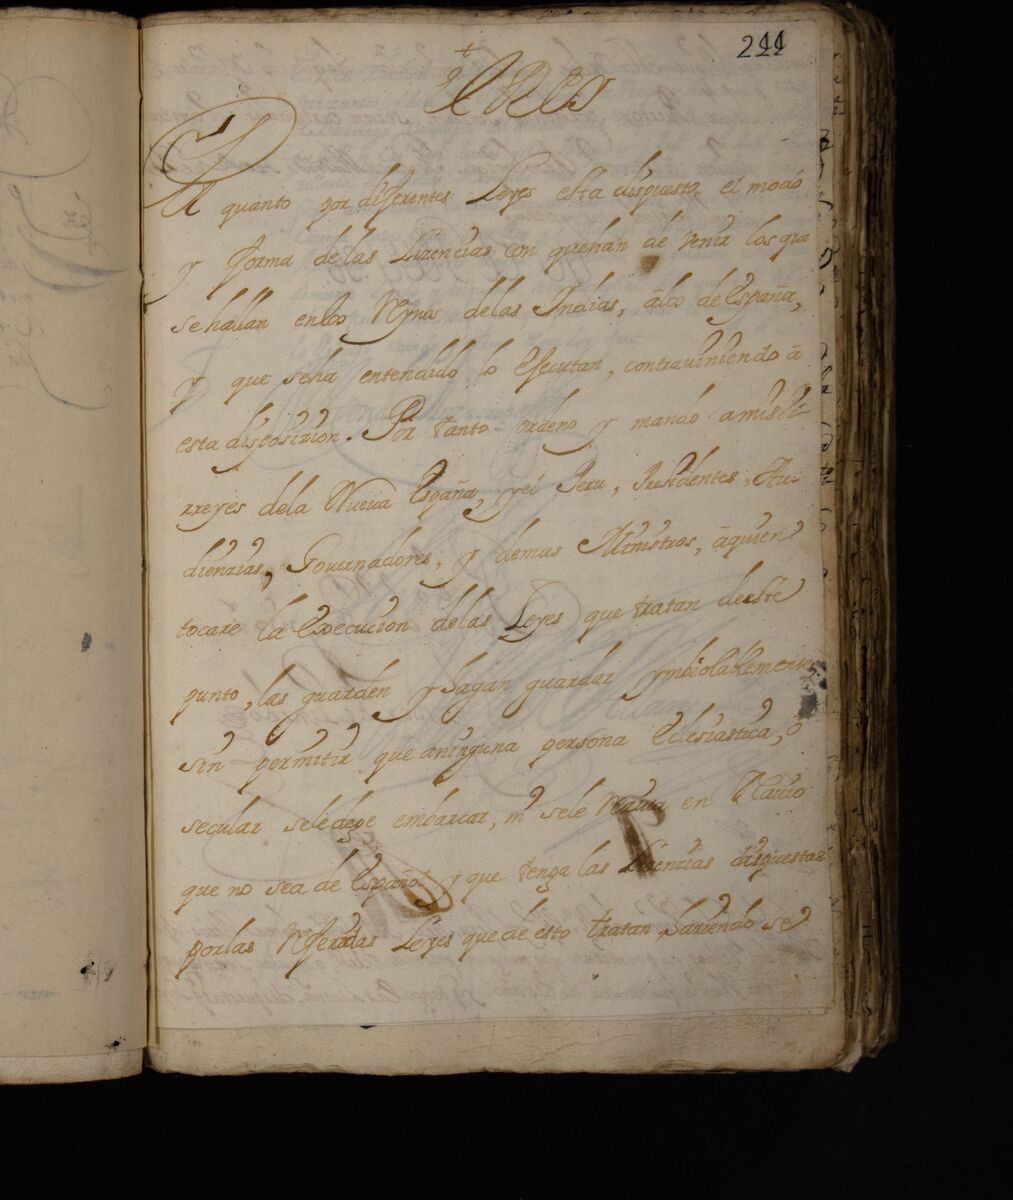 244
El Rey
Por quanto por diferentes Leyes esta dispuesto, el modo
y forma de las Lizencias con quehan de Venir los que
se hallan enlos Reynos delas Indias, ãlos de España,
y que seha entendido lo Ejecutan, contraviniendo ã
esta disposizion. Por tanto ordeno y mando a mis Vi-
rreyes dela Nueva España, y el Peru, Presidentes, Au-
dienzias, Governadores, y demas Ministros, ãquien
tocare la Execucion delas Leyes que tratan deeste
punto, las guarden y hagan guardar ymbiolablemente
sin permitir que aninguna persona Eclesiastica, ò
secular sele deje embarcar, ni sele reciva en Navio
que no sea de Español y que tenga las Lizenzias dispuestas
porlas Referidas Leyes que de esto tratan, haviendo se